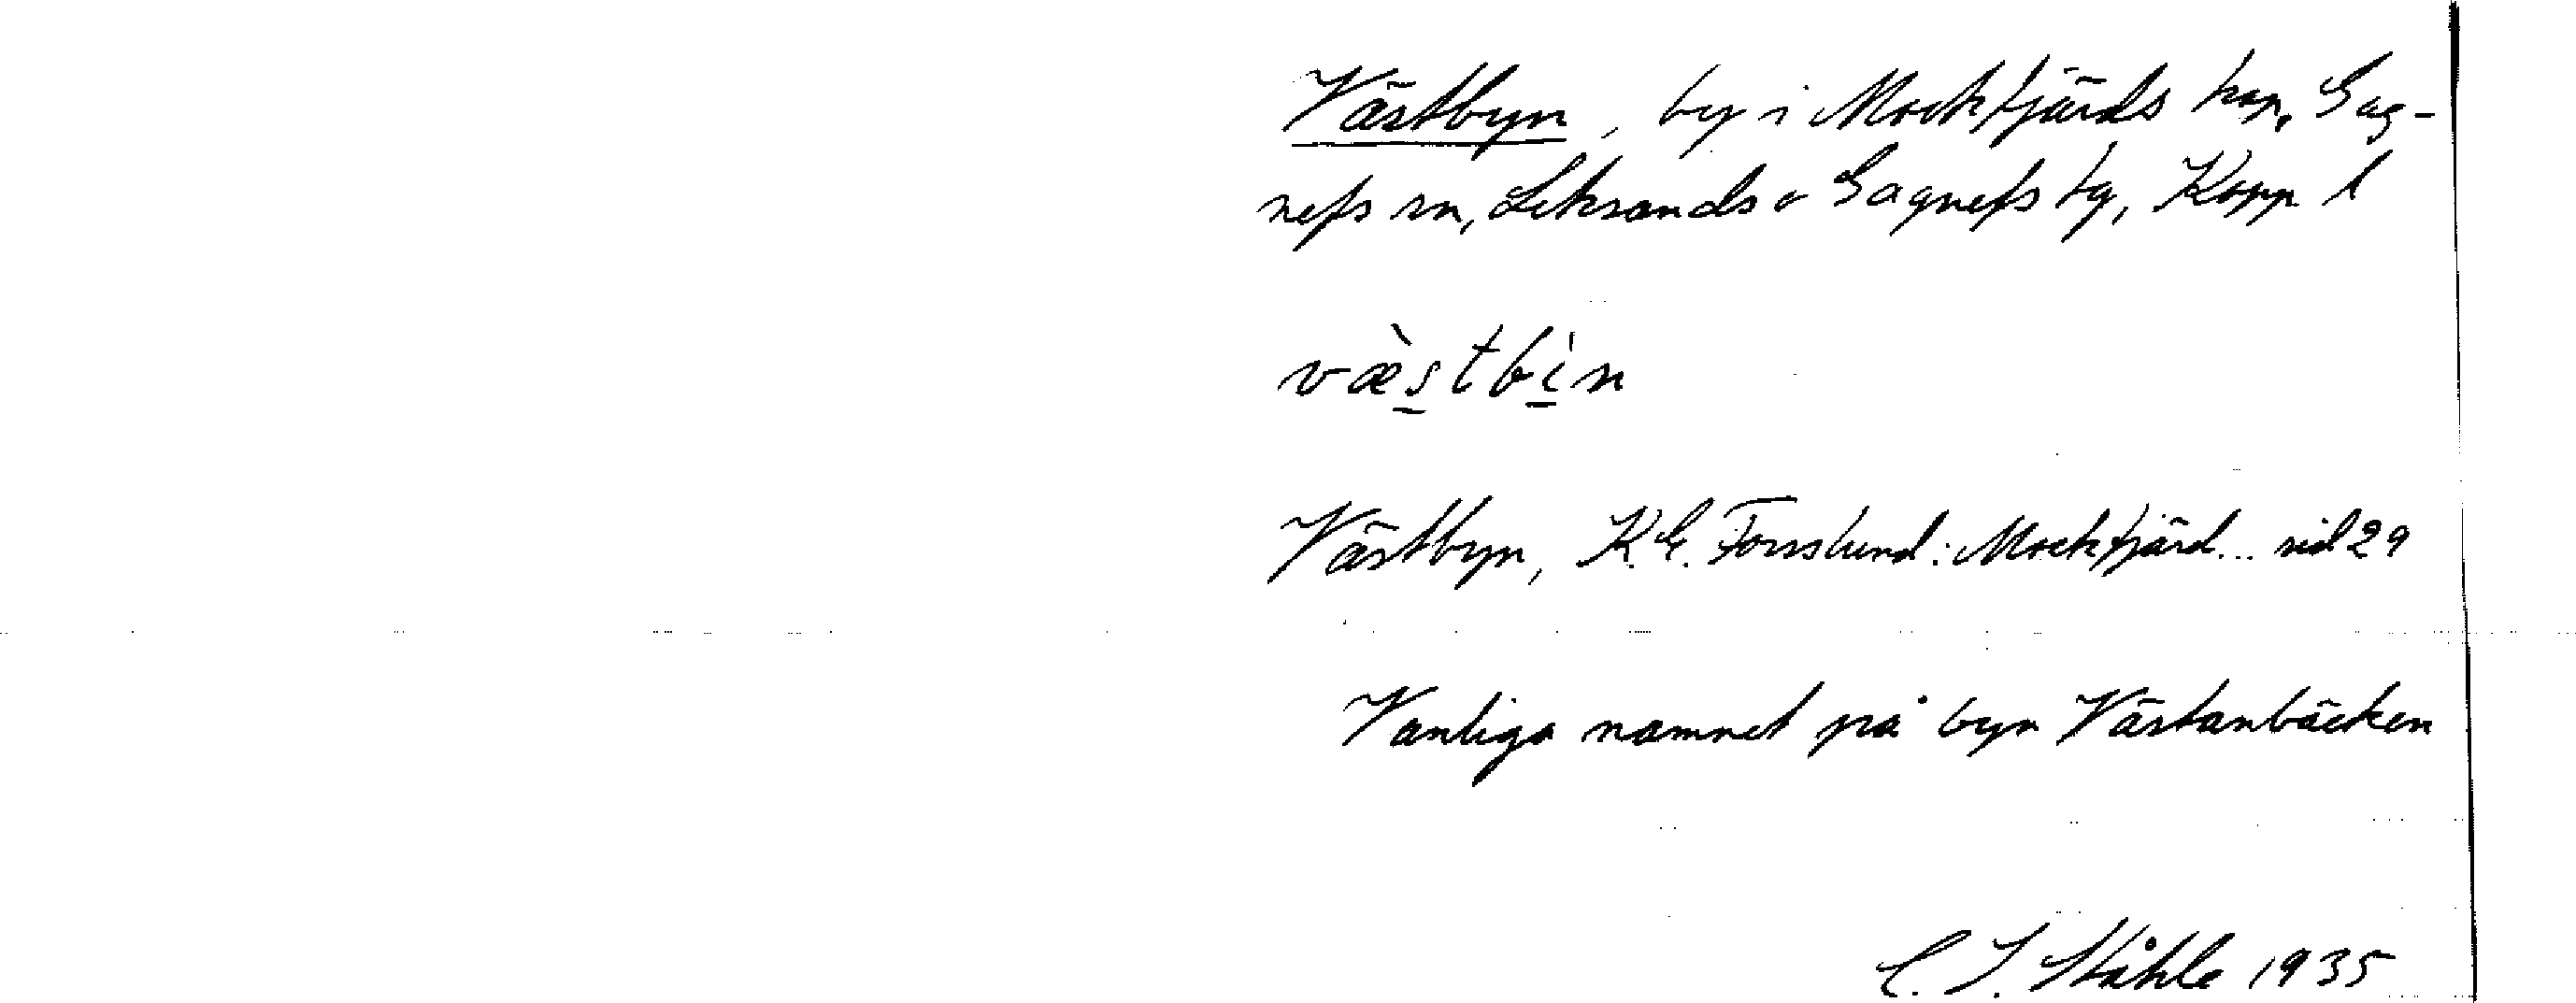 Västbyn, by i Mockfjärds kap, Gag-
nefs sn, Leksands o Gagnefs tg, Kopp l
væ̀stbìn
Västbyn, K.E. Forsslund: Mockfjärd... sid 29
Vanliga namnet på byn Västanbäcken
C. I. Ståhle 1935